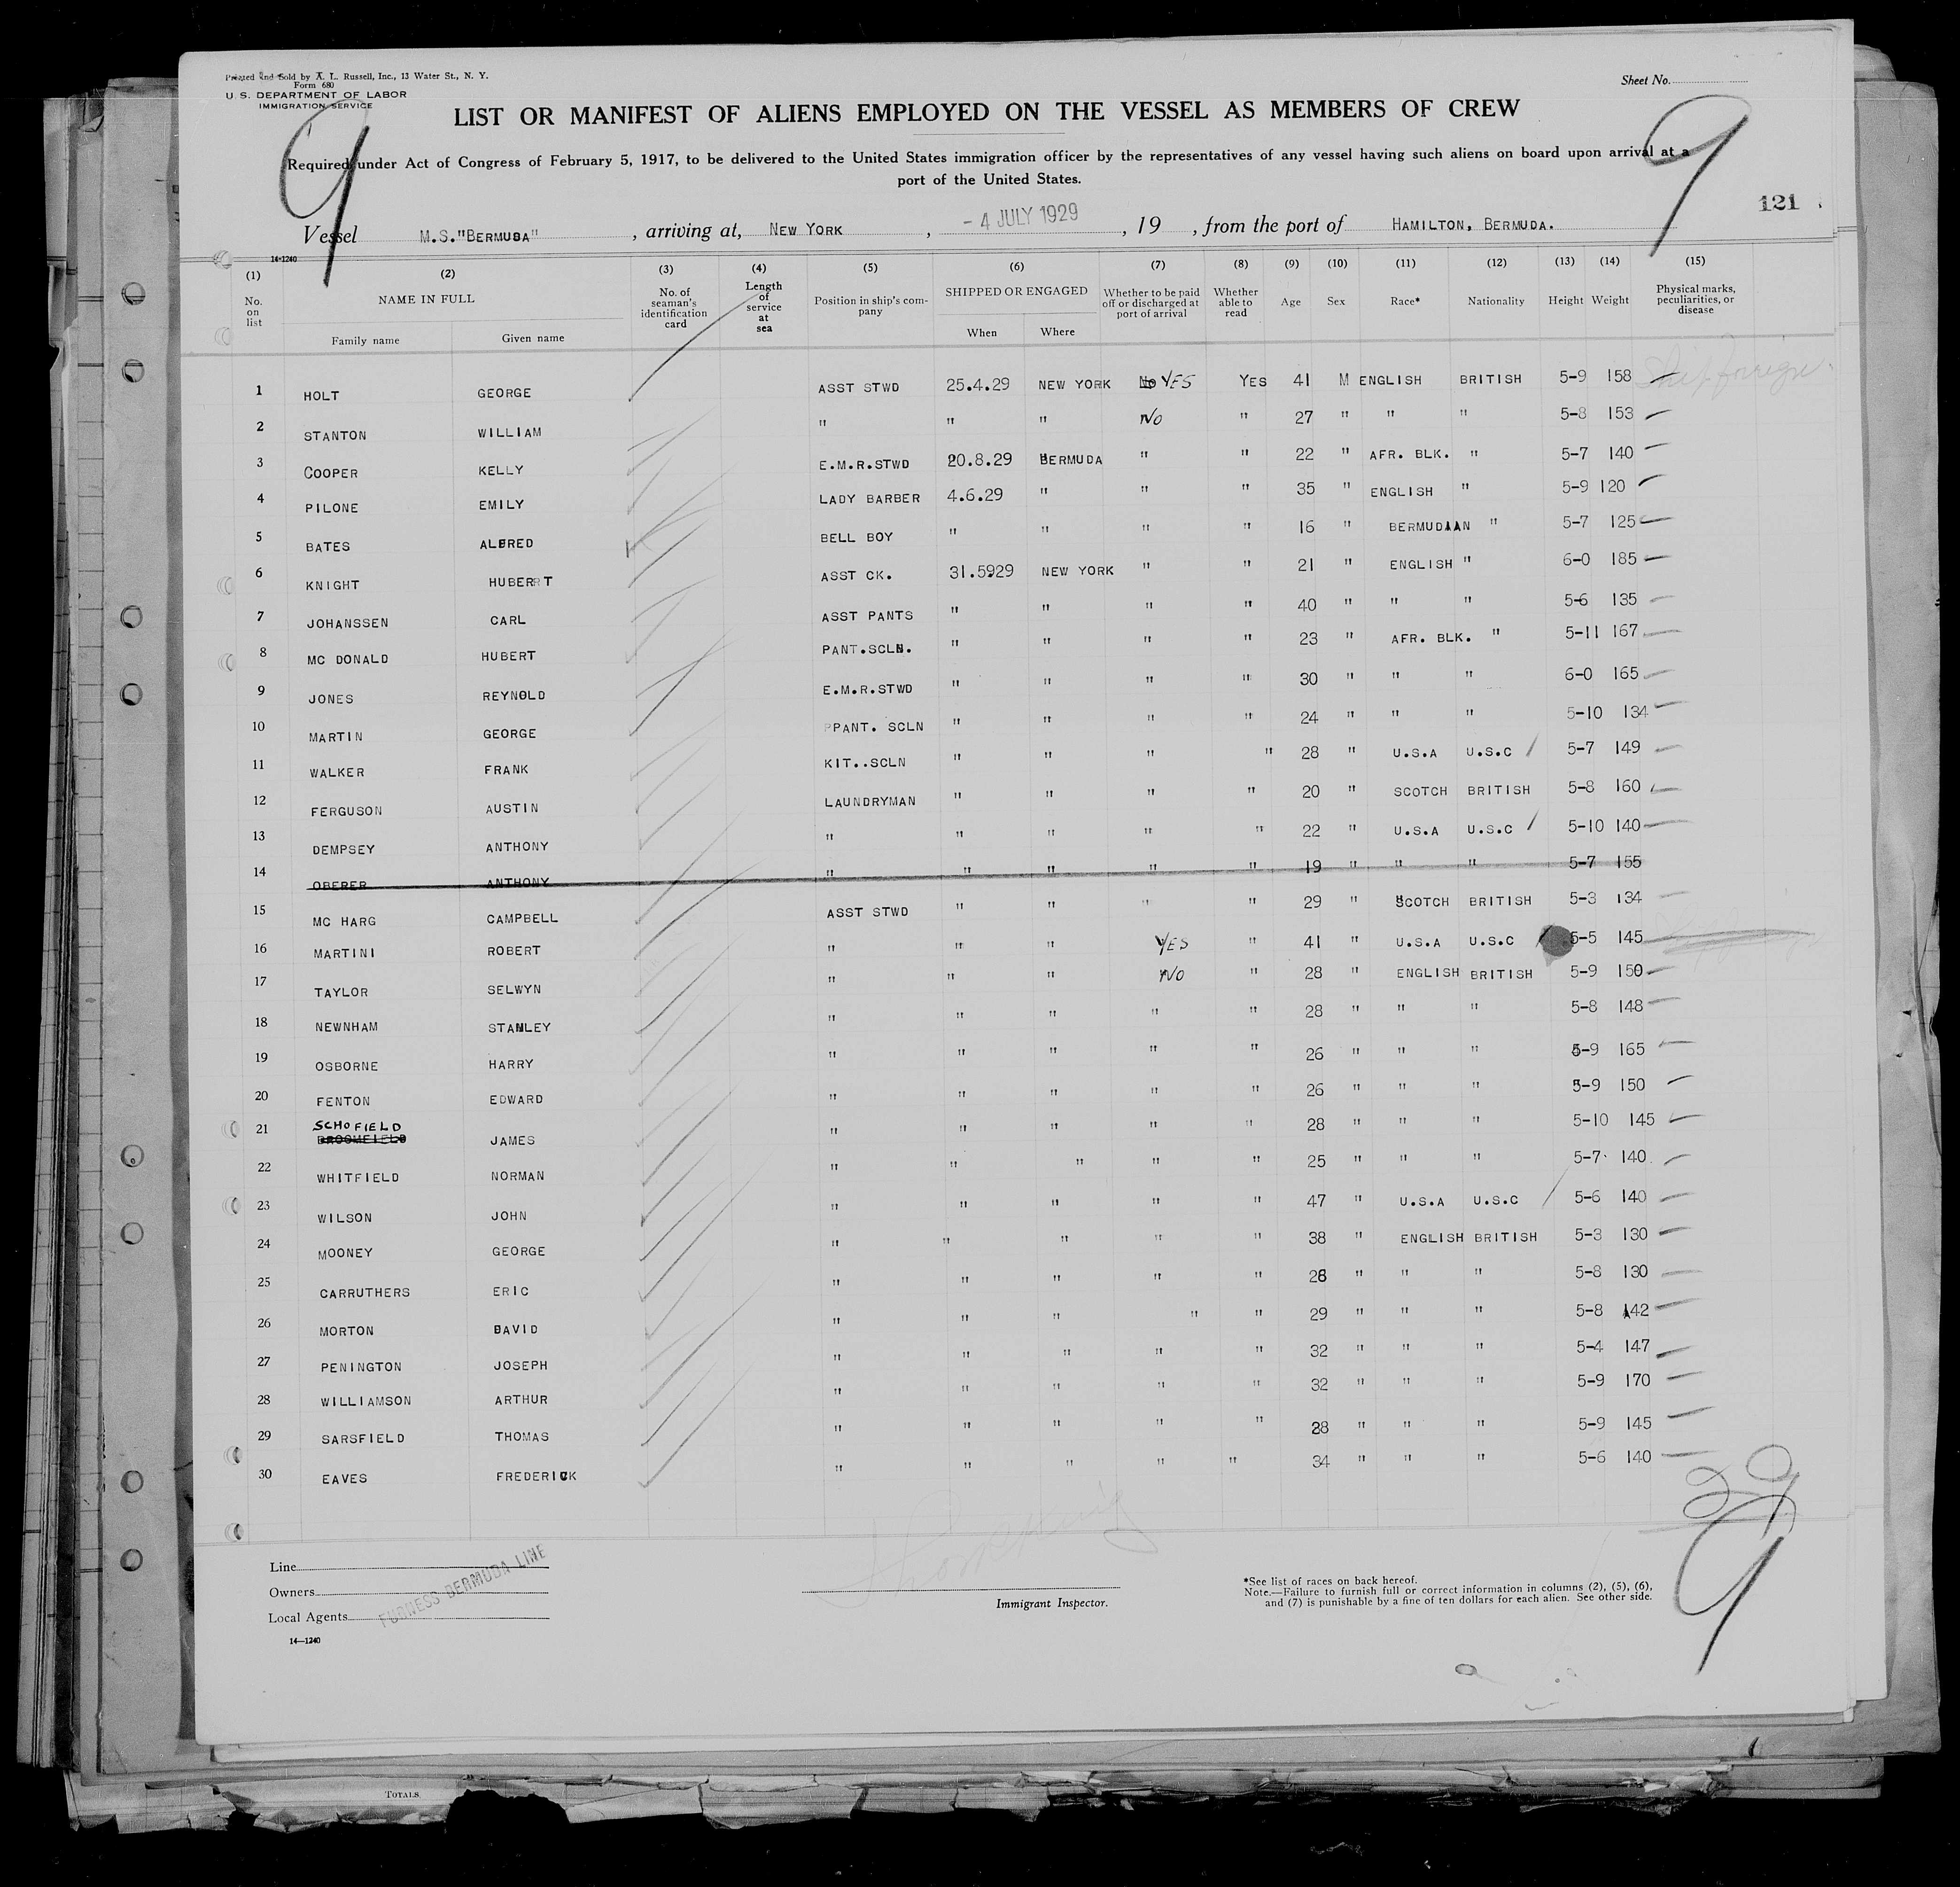 Printed and Sold by A. L. Russell, Inc., 13 Water St., N. Y.
Form 680
U. S. DEPARTMENT OF LABOR
IMMIGRATION SERVICE
Sheet No.
LIST OR MANIFEST OF ALIENS EMPLOYED ON THE VESSEL AS MEMBERS OF CREW
9 9
Required under Act of Congress of February 5, 1917, to be delivered to the United States immigration officer by the representatives of any vessel having such aliens on board upon arrival at a
port of the United States.
121
Vessel M.S."BERMUDA" , arriving at, NEW YORK , - 4 JULY 1929 , 19 , from the port of HAMILTON, BERMUDA.
14-1240
(1) (2) (3) (4) (5) (6) (7) (8) (9) (10) (11) (12) (13) (14) (15)
No. on list NAME IN FULL Family name Given name No. of seaman's identification card Length of service at sea Position in ship's company SHIPPED OR ENGAGED When Where Whether to be paid off or discharged at port of arrival Whether able to read Age Sex Race* Nationality Height Weight Physical marks, peculiarities, or disease
1 HOLT GEORGE ASST STWD 25.4.29 NEW YORK No YES YES 41 M ENGLISH BRITISH 5-9 158 Ship foreign
2 STANTON WILLIAM " " " NO " 27 " " " 5-8 153
3 COOPER KELLY E.M.R.STWD 20.8.29 BERMUDA " " 22 " AFR. BLK. " 5-7 140
4 PILONE EMILY LADY BARBER 4.6.29 " " " 35 " ENGLISH " 5-9 120
5 BATES ALBRED BELL BOY " " " " 16 " BERMUDIAN " 5-7 125
6 KNIGHT HUBERRT ASST CK. 31.5929 NEW YORK " " 21 " ENGLISH " 6-0 185
7 JOHANSSEN CARL ASST PANTS " " " " 40 " " " 5-6 135
8 MC DONALD HUBERT PANT.SCLN. " " " " 23 " AFR. BLK. " 5-11 167
9 JONES REYNOLD E.M.R.STWD " " " " 30 " " " 6-0 165
10 MARTIN GEORGE PPANT. SCLN " " " " 24 " " " 5-10 134
11 WALKER FRANK KIT..SCLN " " " " 28 " U.S.A U.S.C 5-7 149
12 FERGUSON AUSTIN LAUNDRYMAN " " " " 20 " SCOTCH BRITISH 5-8 160
13 DEMPSEY ANTHONY " " " " " 22 " U.S.A U.S.C 5-10 140
14 OBERER ANTHONY " " " " " 19 " " " 5-7 155
15 MC HARG CAMPBELL ASST STWD " " " " 29 " SCOTCH BRITISH 5-3 134
16 MARTINI ROBERT " " " YES " 41 " U.S.A U.S.C 5-5 145
17 TAYLOR SELWYN " " " NO " 28 " ENGLISH BRITISH 5-9 150
18 NEWNHAM STANLEY " " " " " 28 " " " 5-8 148
19 OSBORNE HARRY " " " " " 26 " " " 5-9 165
20 FENTON EDWARD " " " " " 26 " " " 5-9 150
21 SCHOFIELD BROOMFIELD JAMES " " " " " 28 " " " 5-10 145
22 WHITFIELD NORMAN " " " " " 25 " " " 5-7 140
23 WILSON JOHN " " " " " 47 " U.S.A U.S.C 5-6 140
24 MOONEY GEORGE " " " " " 38 " ENGLISH BRITISH 5-3 130
25 CARRUTHERS ERIC " " " " " 26 " " " 5-8 130
26 MORTON DAVID " " " " " 29 " " " 5-8 142
27 PENINGTON JOSEPH " " " " " 32 " " " 5-4 147
28 WILLIAMSON ARTHUR " " " " " 32 " " " 5-9 170
29 SARSFIELD THOMAS " " " " " 28 " " " 5-9 145
30 EAVES FREDERICK " " " " " 34 " " " 5-6 140
29
9
Line
Owners
Local Agents
FURNESS BERMUDA LINE
14—1240
Immigrant Inspector.
*See list of races on back hereof.
Note.—Failure to furnish full or correct information in columns (2), (5), (6),
and (7) is punishable by a fine of ten dollars for each alien. See other side.
TOTALS